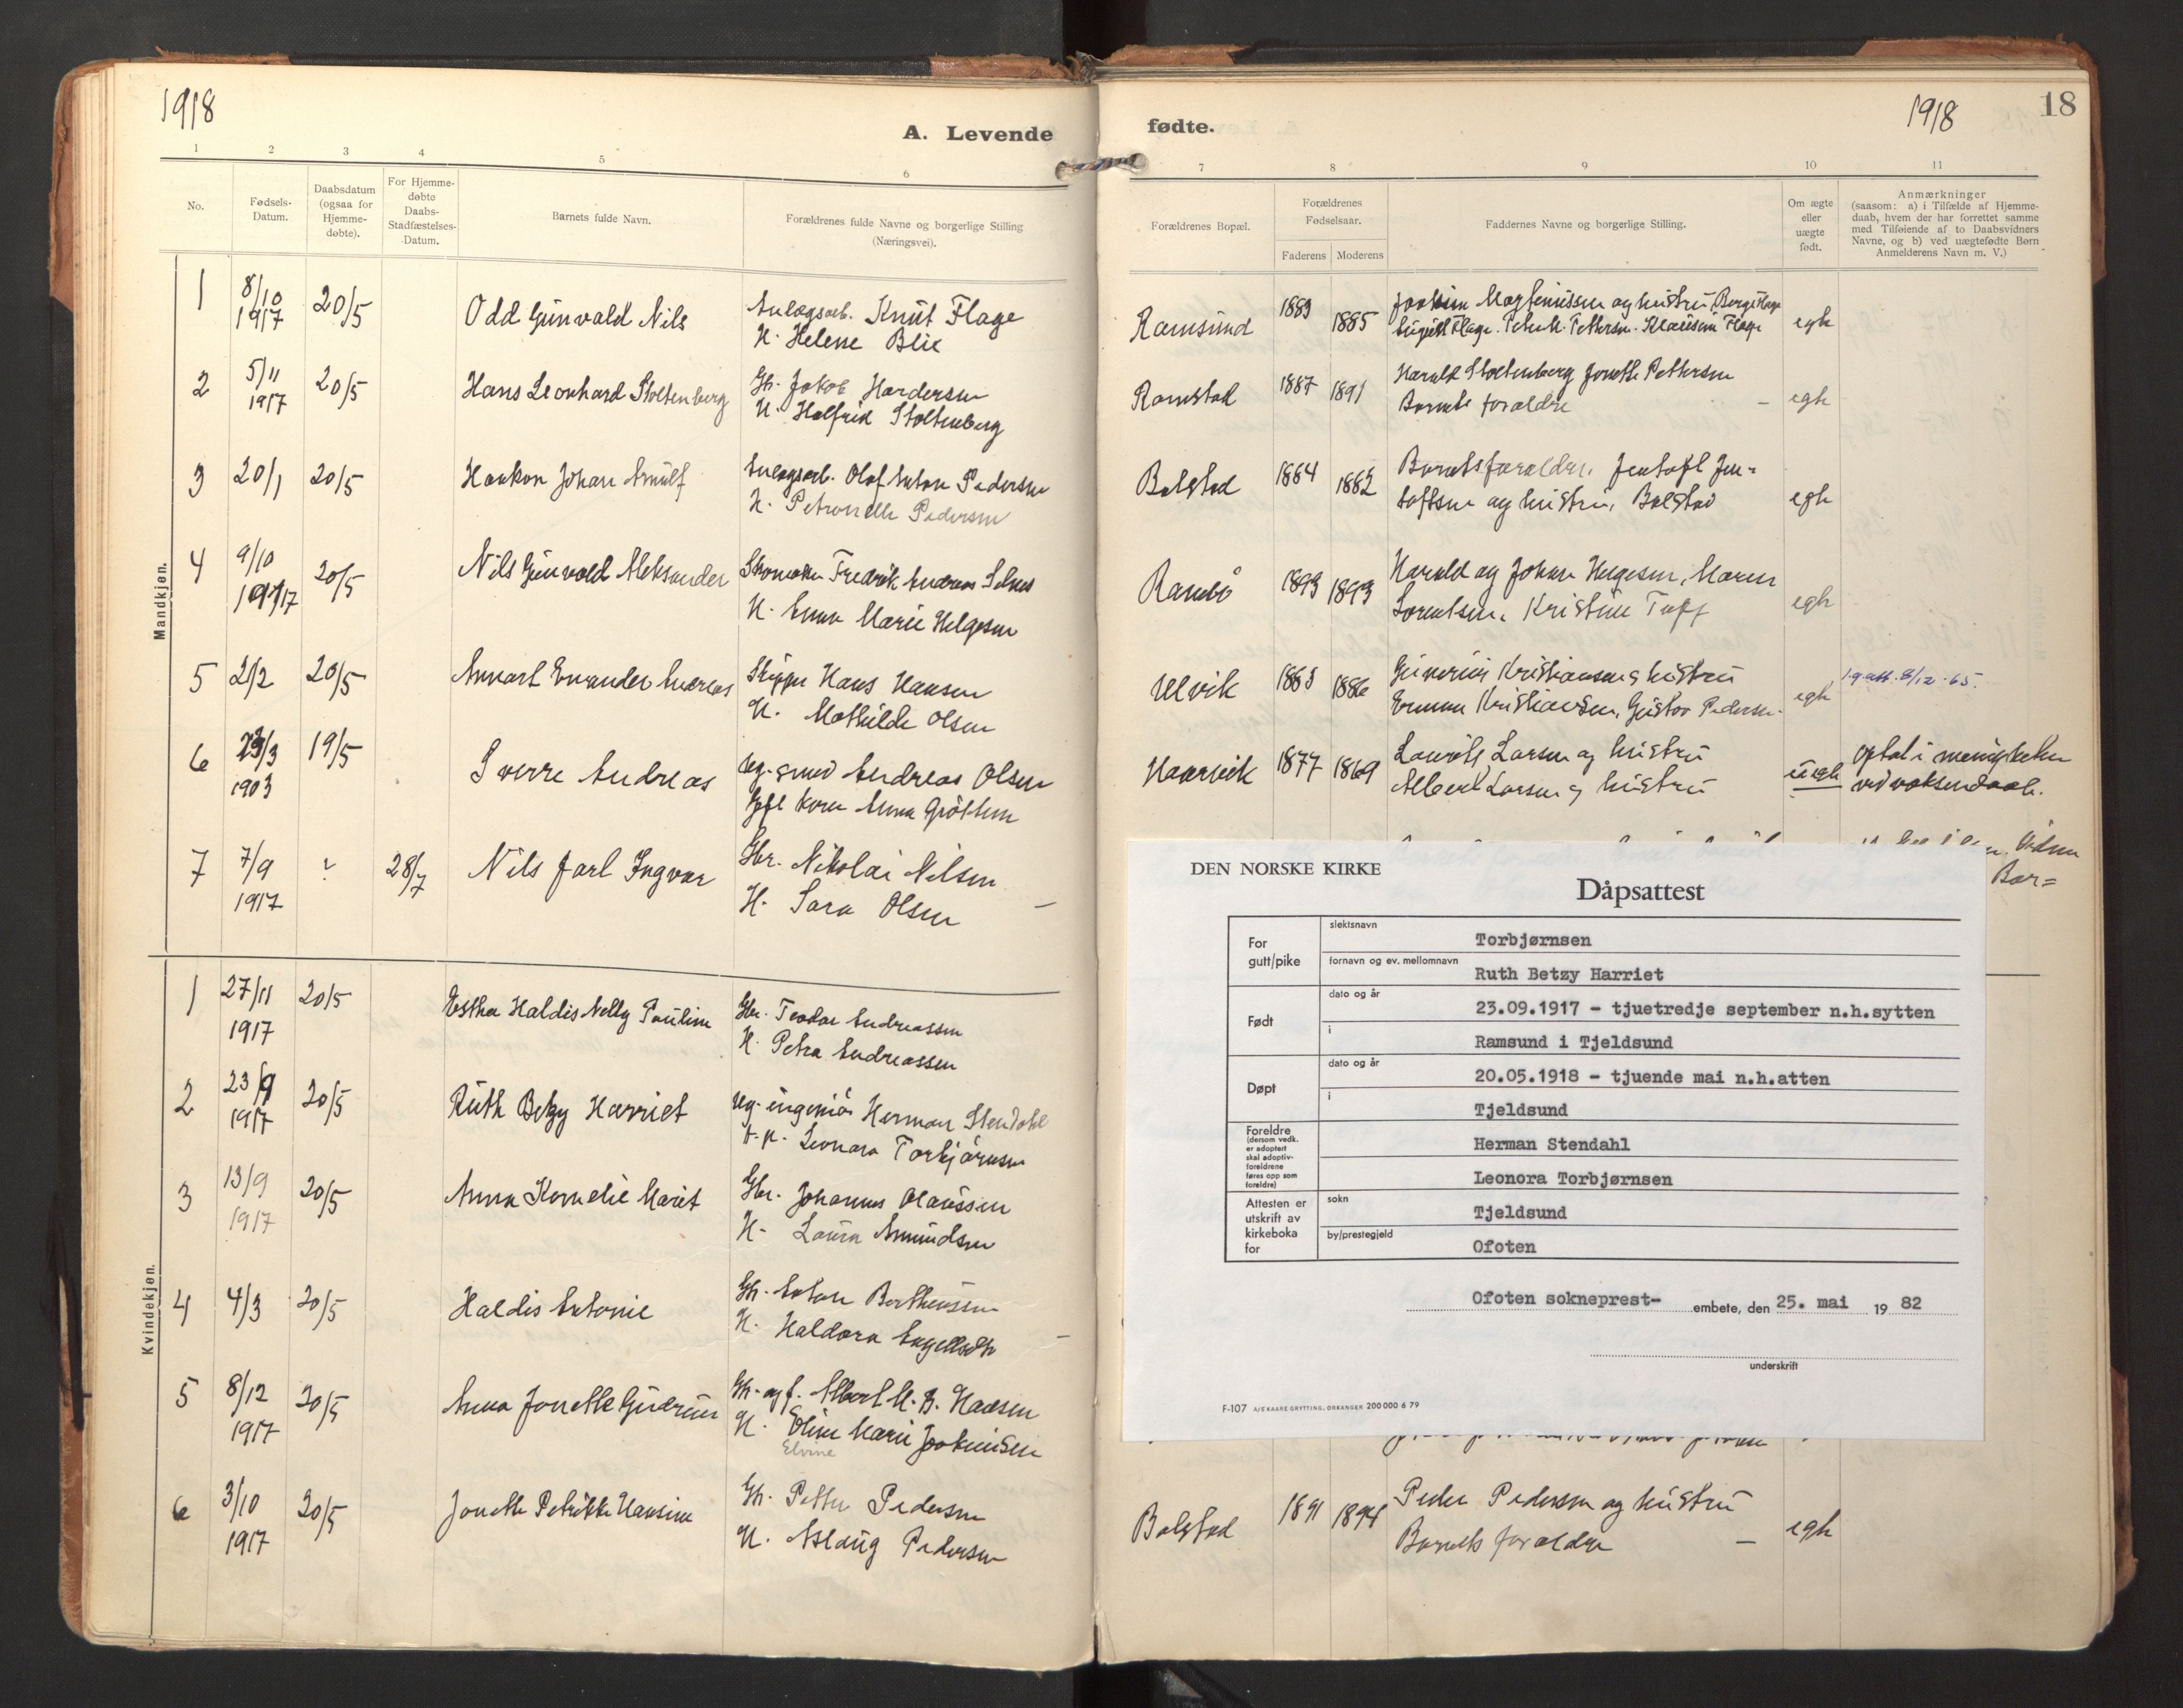 1918
A. Levende
1 2 3 4 5 6
No.
Fødsels-
Datum.
Daabsdatum
(ogsaa for
Hjemme-
døbte).
For Hjemme-
døbte
Daabs-
Stadfæstelses-
Datum.
Barnets fulde Navn.
Forældrenes fulde Navne og borgerlige Stilling
(Næringsvei).
Mandkjøn.
1 8/10 1917 20/5 Odd Gunvald Nils
Anlægsarb. Knut Flage
H. Helene Blix
2 5/11 1917 20/5 Hans Leonhard Stoltenberg
Gb. Jakob Hardersen
H. Halfrid Stoltenberg
3 20/1 20/5 Haakon Johan Arnulf
Anlægsarb. Olaf Anton Pedersen
H. Petronelle Pedersen
4 9/10 1917 20/5 Nils Gunvald Aleksander
Skomaker Fredrik Andreas
H. Emma Marie Helgesen
5 21/2 20/5 Annart Evander Andreas
Skipper Hans Hansen
H. Mathilde Olsen
6 23/3 1903 19/5 Sverre Andreas
Ug. smed Andreas Olsen
Anna
7 7/9 1917 ? 28/7 Nils Jarl Ingvar
Gbr. Nikolai Nilsen
H. Sara Olsen
Kvindekjøn.
1 27/11 1917 20/5 Esther Haldis Nelly Pauline
Gbr. Teodor Andreassen
H. Petra Andreassen
2 23/9 1917 20/5 Ruth Betzy Harriet
Ug. ingeniør Herman Stendahl
t.p. Leonora Torbjørnsen
3 13/9 1917 20/5 Anna Kornelie Marit
Gbr. Johannes Olaussen
H. Laura Amundsen
4 4/3 20/5 Haldis Antonie
Gb. Anton Bertheussen
H. Haldora
5 8/12 1917 20/5 Anna Jonette Gudrun
Gb. og f. Albert M. B. Hansen
H. Oline Marie Joakimsen
Elvine
6 3/10 1917 20/5 Jonette Petrikke Hansine
Gb. Petter Pedersen
H. Aslaug Pedersen
fødte.
1918
18
7 8 9 10 11
Forældrenes Bopæl.
Forældrenes
Fødselsaar.
Faderens Moderens
Faddernes Navne og borgerlige Stilling.
Om ægte
eller
uægte
født.
Anmærkninger
(saasom: a) i Tilfælde af Hjemme-
daab, hvem der har forrettet samme
med Tilføiende af to Daabsvidners
Navne, og b) ved uægtefødte Børn
Anmelderens Navn m. V.)
Ramsund 1883 1885 Joakim Martinussen og hustru, Berge Flage egte
Flage. Peter M. Pettersen. Flage
Ramstad 1887 1891 Harald Stoltenberg Jonette Pettersen
Barnets forældre — egte
Balstad 1884 1882 Barnets forældre, Jentoft Jen-
toftsen og hustru, Balstad egte
1893 1893 Harald og Johan Helgesen, Maren
Lorentsen, Kristine egte
Ulvik 1883 1886 Kristiansen & hustru
Emma Kristiansen, Gustav Pedersen. egte
19 att. 8/12-65.
1877 1869 Laurits Larsen og hustru
Albert Larsen & hustru uegte
Optat i menigheten
ved voksendaab.
Bar=
DEN NORSKE KIRKE
Dåpsattest
For
gutt/pike
slektsnavn
Torbjørnsen
fornavn og ev. mellomnavn
Ruth Betzy Harriet
Født
dato og år
23.09.1917 - tjuetredje september n.h.sytten
i
Ramsund i Tjeldsund
Døpt
dato og år
20.05.1918 - tjuende mai n.h.atten
i
Tjeldsund
Foreldre
(dersom vedk.
er adoptert
skal adoptiv-
foreldrene
føres opp som
foreldre)
Herman Stendahl
Leonora Torbjørnsen
Attesten er
utskrift av
kirkeboka
for
sokn
Tjeldsund
by/prestegjeld
Ofoten
Ofoten sokneprest- embete, den 25. mai 19 82
underskrift
F-107 A/S KAARE GRYTTING, ORKANGER 200 000 6 79
Balstad 1891 1894 Peder Pedersen og hustru
Barnets forældre — egte